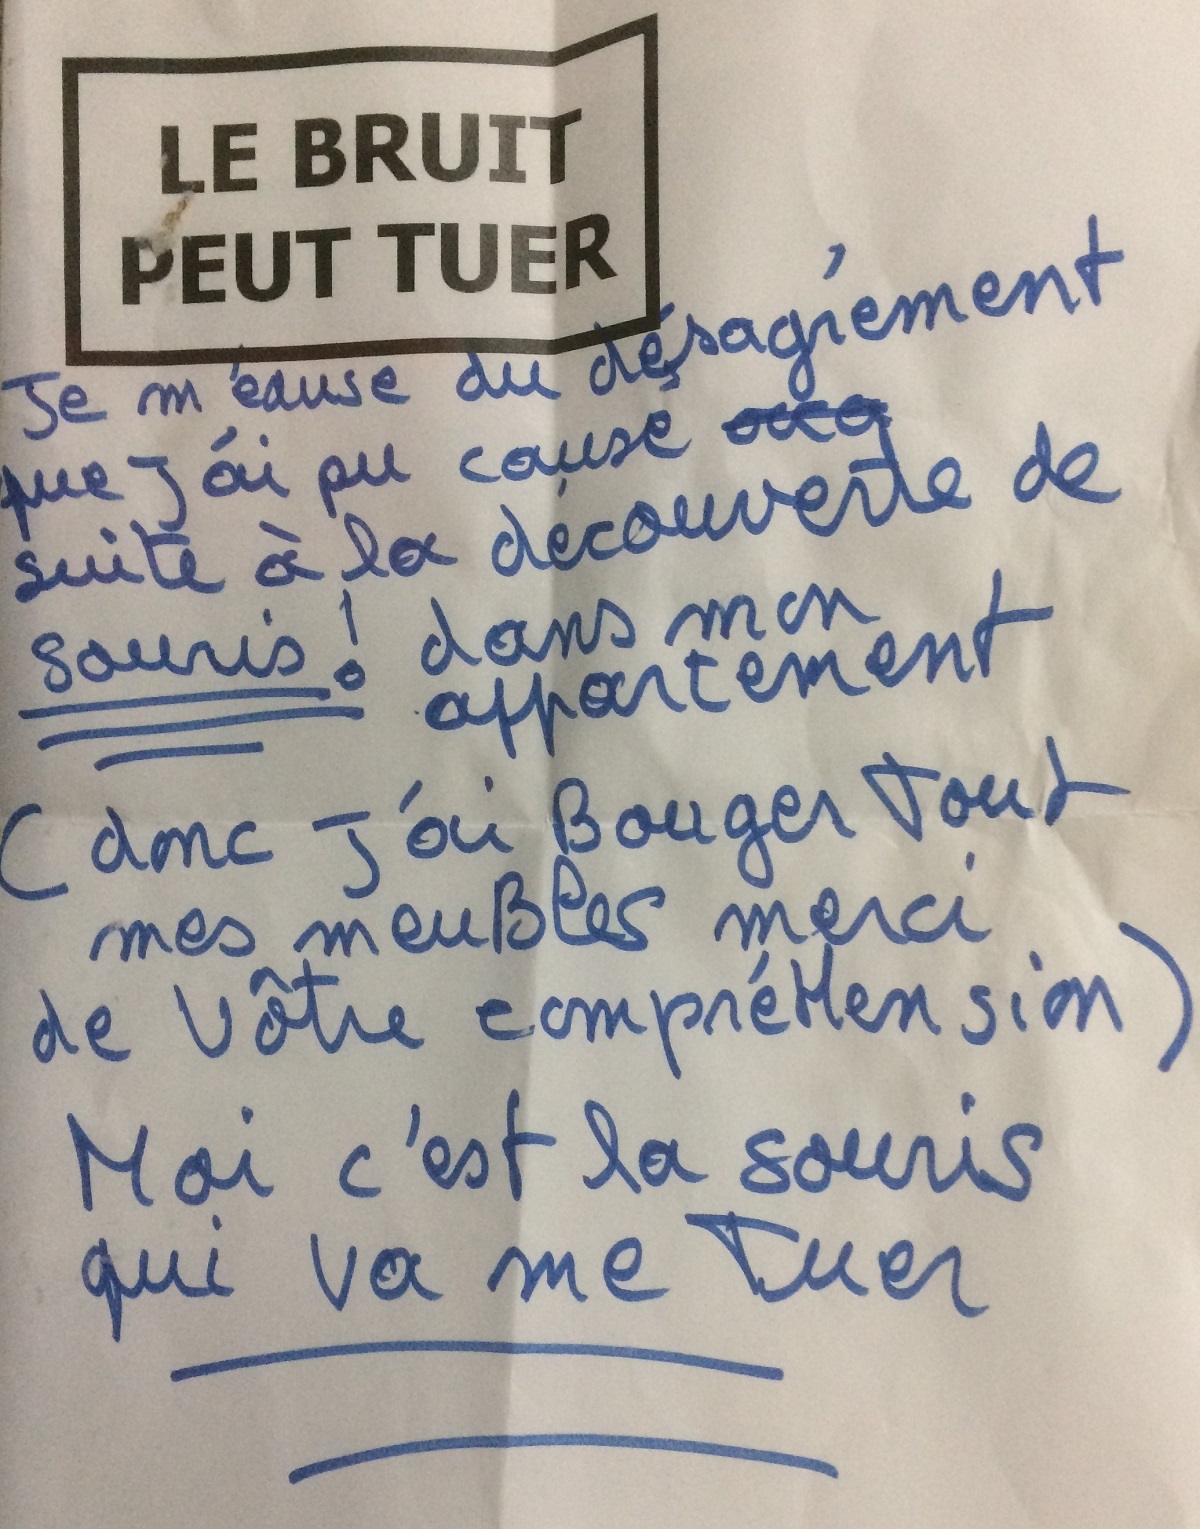 LE BRUIT
PEUT TUER
Je m'écuse du désagrément
que J'ai pu causé
suite à la découverte de
souris! dans mon
appartement
(donc J'ai Bouger Tout
mes meuBles merci
de Vôtre compréHension)
Moi c'est la souris
qui va me Tuer